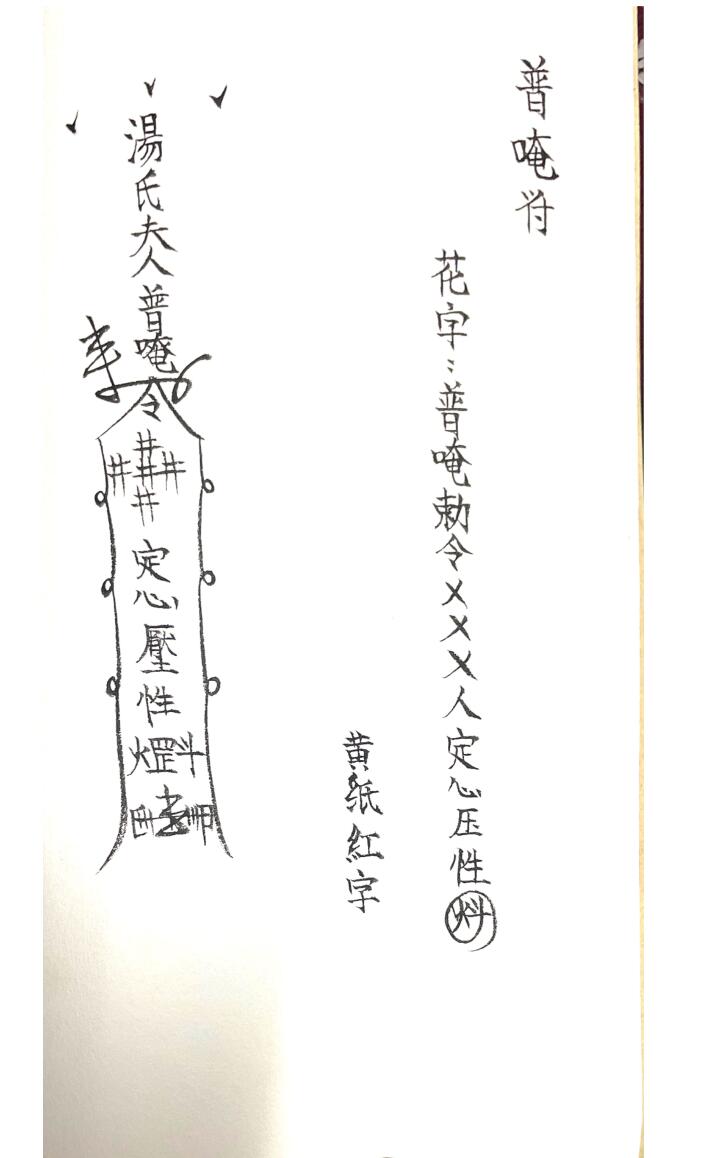 普唵符
花字：普唵勅令XXX人定心压性炓
黄紙紅字
湯氏夫人普唵
令
井
井井井
井
定心壓性